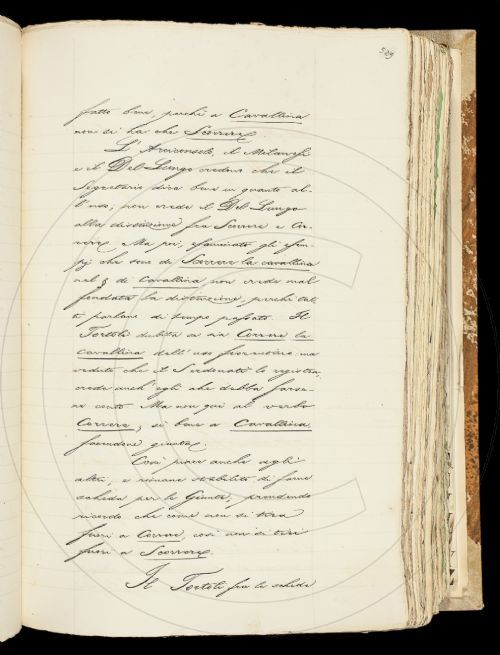 529
fatto bene, perchè a Cavallina
non si ha che Scorrere.
L'Arciconsolo, il Milanesi
e il Del Lungo credono che il
Segretario dica bene in quanto al-
l'uso; non crede il Del Lungo
alla distinzione fra Scorrere e Cor-
rere. Ma poi, esaminato gli esem-
pj che sono di Scorrere la cavallina
nel § di Cavallina non crede mal
fondata la distinzione, perchè tut-
ti parlano di tempo passato. Il
Tortoli dubita se sia Correre la
cavallina dell'uso fiorentino; ma
veduto che il Sordenati lo registra,
crede anch'egli che debba farse-
ne conto. Ma non qui al verbo
Correre, sì bene a Cavallina,
facendone giunta.
Così piace anche agli
altri, e rimane stabilito di farne
scheda per la Giunta, prendendo
ricordo che come non si tira
fuori a Correre, così non si tiri
fuori a Scorrere.
Il Tortoli fra le schede